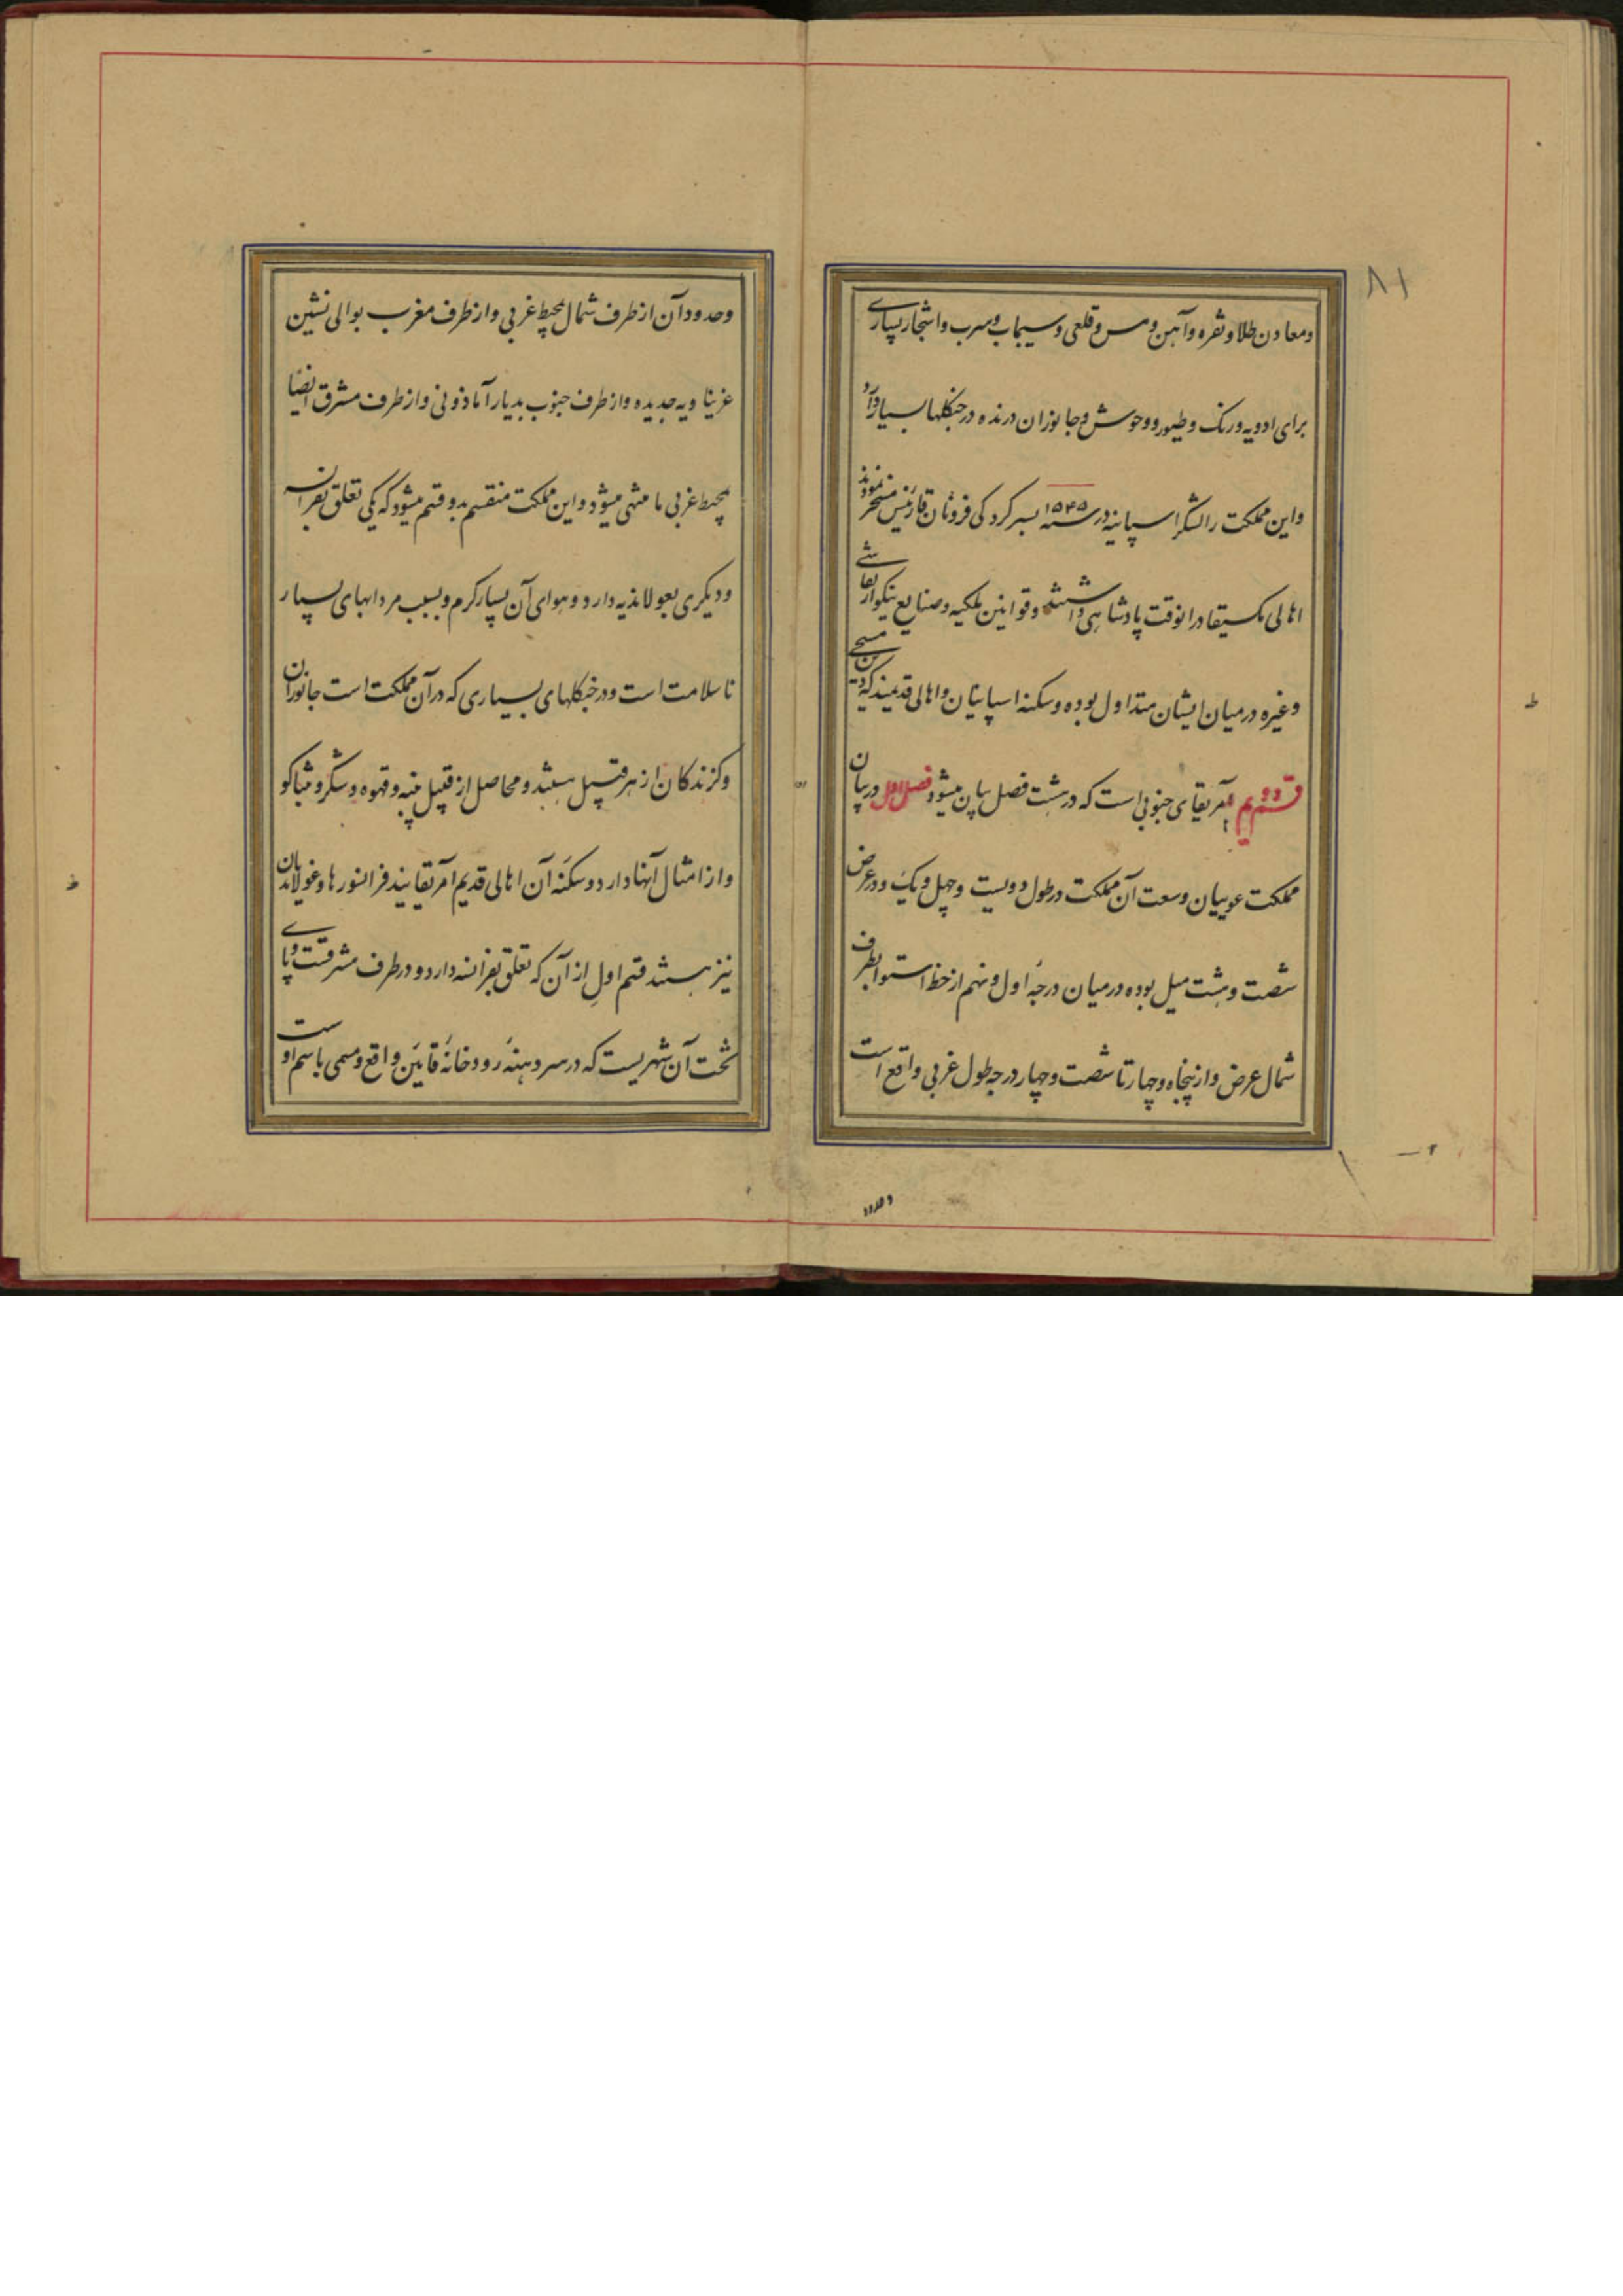 ۸۱
ومعادن طلا ونقره وآهن ومس وقلعی وسیماب وسرب واشجار بسیاری
برای ادویه ورنک وطیور ووحوش وجانوران درنده در جنکلها بسیار دارد
واین مملکت را لشکر اسپانیه در سنه ۱۵۴۵ بسرکردکی فرونان قارتیس مسخر نمودند
اهالی مکسیقا در انوقت پادشاهی داشتند وقوانین ملکیه وصنایع نیکو از نقاشی
وغیره در میان ایشان متداول بوده وسکنه اسپانیان واهالی قدیمند که در دین مسیحی
قسم دویم آمریقای جنوبی است که در هشت فصل بیان میشود فصل اول در بیان
مملکت عوییان وسعت آن مملکت در طول دویست وچهل ویک ودر عرض
شصت وهشت میل بوده در میان درجهٔ اول ونهم از خط استوا بطرف
شمال عرض واز پنجاه وچهار تا شصت وچهار درجه طول غربی واقع است
وحدود آن از طرف شمال بمحیط غربی واز طرف مغرب بوالی نشین
غرینا ویه جدیده واز طرف جنوب بدیار آماذونی واز طرف مشرق ایضا
بمحیط غربی ما منتهی میشود واین مملکت منقسم بدو قسم میشود که یکی تعلق بفرانسه
ودیکری بغولاندیه دارد وهوای آن بسیار کرم وبسبب مردابهای بسیار
ناسلامت است ودر جنکلهای بسیاری که در آن مملکت است جانوران
وکزندکان از هر قبیل هستند ومحاصل از قبیل پنبه وقهوه وشکر وتنباکو
واز امثال آنها دارد وسکنهٔ آن اهالی قدیم آمریقایند فرانسورها وغولاندیان
نیز هستند قسم اول از آن که تعلق بفرانسه دارد ودر طرف مشرقست وپای
تخت آن شهریست که در سر دهنهٔ رودخانهٔ قایین واقع ومسمی باسم اوست